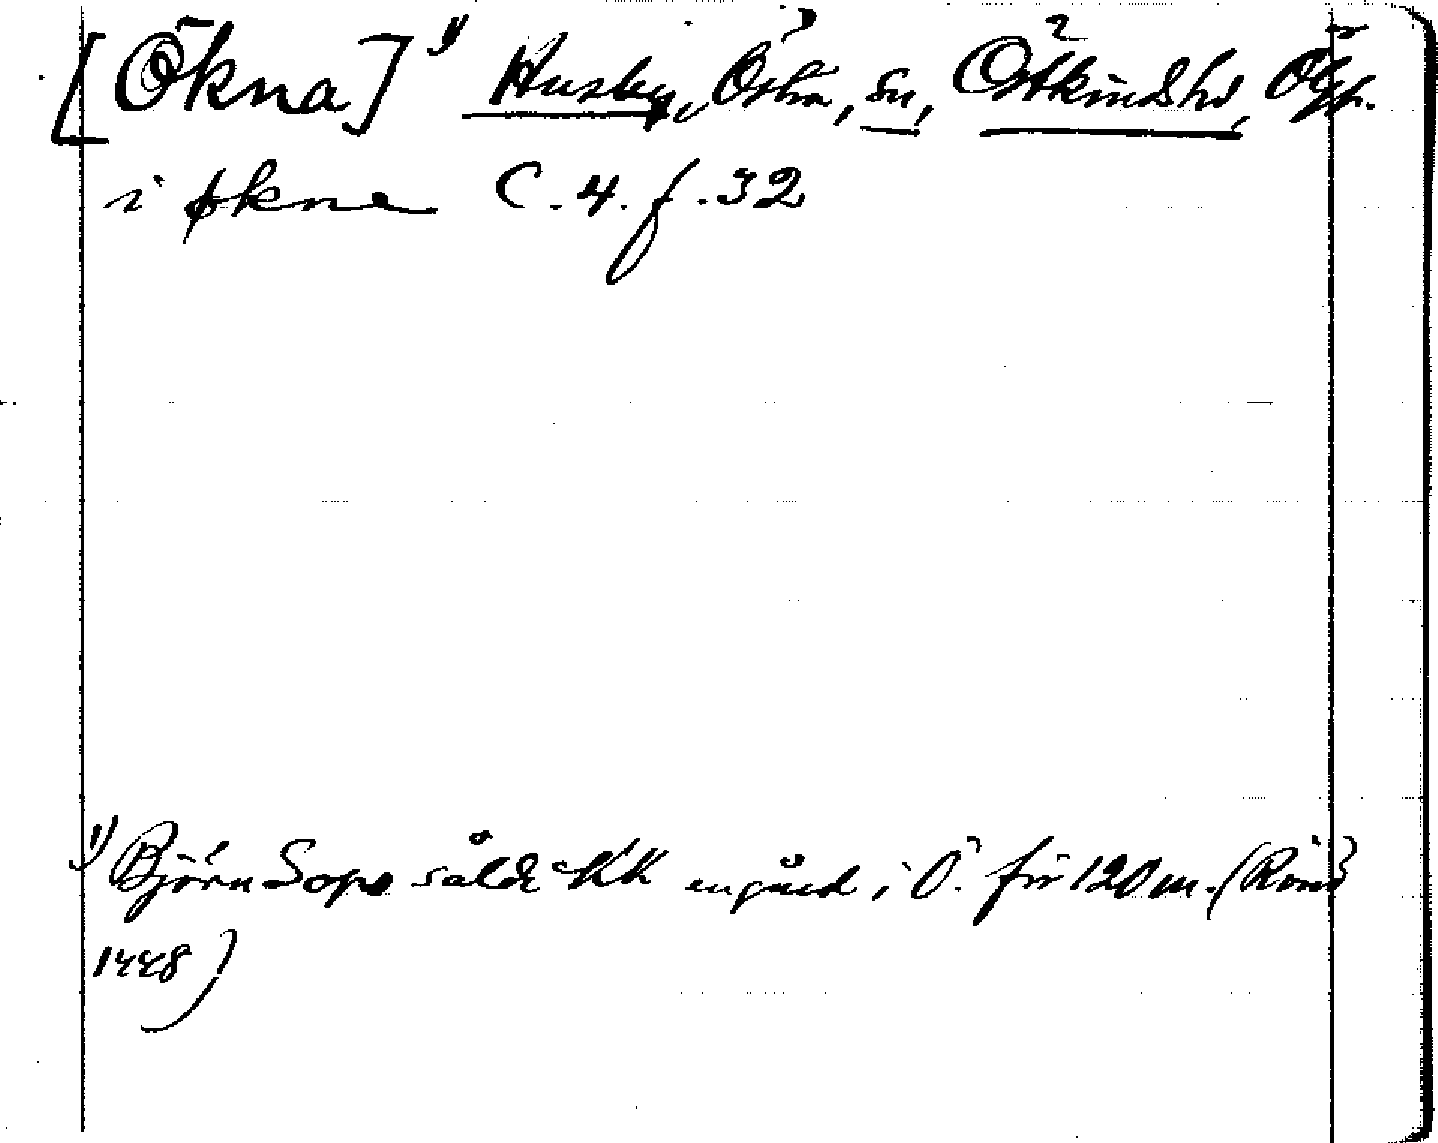 [Ökna] 1) Husby, Östra, sn, Östkinds hd, Ögtl.
i økna C.4. f. 32
1) Björn Sope sålde KK en gård i Ö. för 120 m. (Rönö
1448)